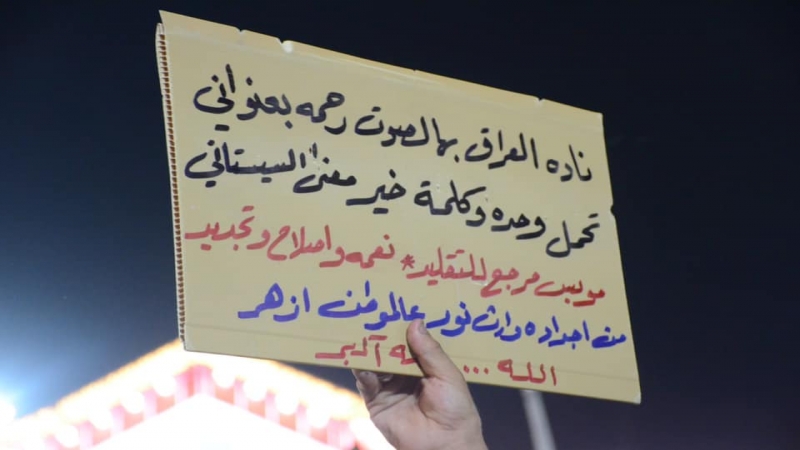 ناده العراق بهالصوت رحمه بعنواني
تحمل وحده وكلمة خير معنى السيستاني
موبس مرجع للتقليد * نعمه واصلاح وتجديد
من اجداده وارث نور عالموطن ازهر
الله ... أكبر